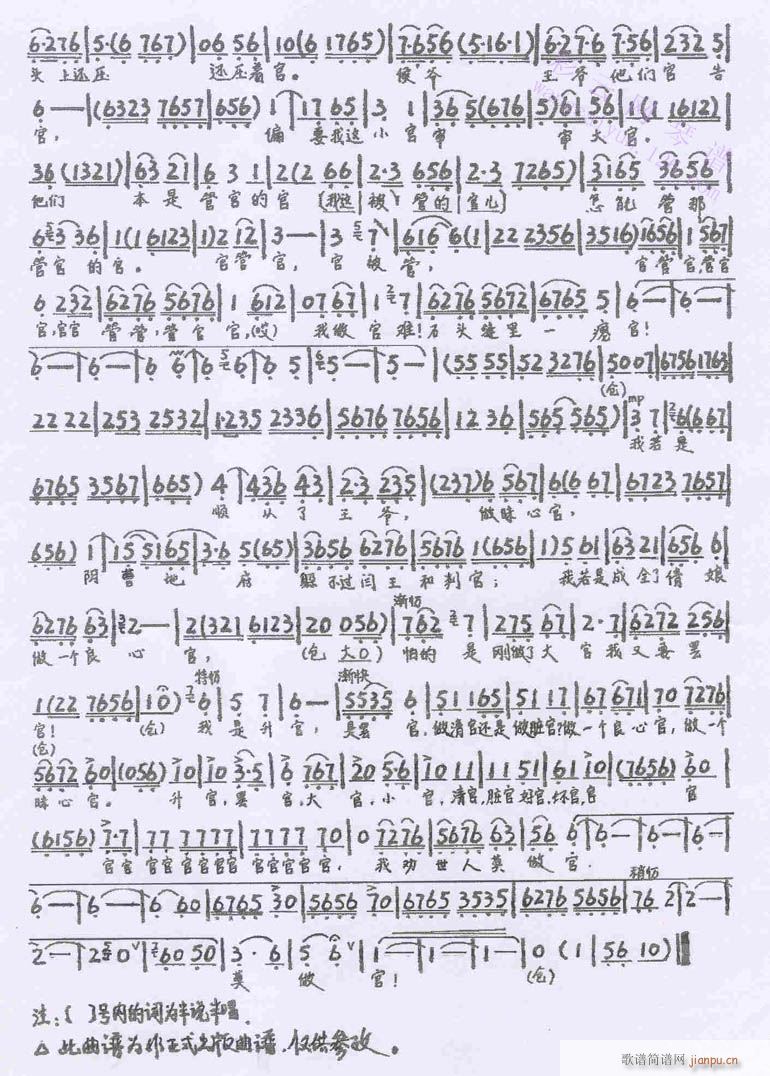 6·276|5·(6 767)|06 56|10(6 1765)|7·656(5·16·1)|6·27·6 7·56|2·32 5
头上还压 还压着官。 侯爷 王爷他们官告
6—|(6323 7657|656) 1|17 65|3 1|36 5(676|5)61 56|1(1 1612)
官， 偏要我这小官审 审大官。
36(1321)|63 21|6 3 1|2(2 66|2·3 656|2·3 7265)|3165 3656
他们 本是管官的官 [我这被管的官儿] 怎能管那
6 36|1(1 6123|1)2 12|3—|3 7|616 6(1|22 2356|3516)1656|1 567
管官的官。 官管官，官被管， 官管官，管官
6 232|6276 5676|1 612|07 67|1 7|6276 5672|6765 5|6—|6—
官，官官管管，管官官，(哎) 我做官难！石头缝里一瘪官！
6—|6—|6 6|6 5|5—|5—|(55 55|52 3276|5007|6756 1763
(仓)
22 22|253 2532|1·235 2336|5676 7656|12 36|565 565)|3 7|6(667
mp
我若是
6765 3567|665) 4|436 43|2·3 235|(237)6 567|6(6 67|6723 7657
顺从了王爷， 做昧心官，
656) 1|15 5165|3·6 5(65)|3656 6276|5676 1(656|1)5 61|63 21|656 6
阴曹地府 躲不过闫王和判官； 我若是成全了倩娘
6276 63|2—|2(321 6123|20 056)|762 7|275 67|2·7|6272 256
渐切
做一个良心官， (仓 大0) 怕的是刚做了大官我又要罢
1(22 7656|10) 6|5 7|6—|5535 6|51 165|51 17|67 671|70 7276
特切 渐快
官！ (仓) 我是升官，是罢官，做清官还是做脏官？做一个良心官，做一个
(仓)
5672 60|(056) 10|10 3·5|6 767|20 5·6|10 11|11 51|61 10|(7656) 60
昧心官。 升官，罢官，大官，小官，清官，脏官 好官，坏官，官 官
(6156) 7·7|77 7777|7777 70|0 7276|5676 63|56 6|6—|6—|6—
官官官官官官官官 官官官官官， 我劝世人莫做官．
6—|6—|6 60|6765 30|5656 70|6765 3535|6276 5656|76 2|2—
稍切
2—|2 0|60 50|3·6|5 6|1—|1—|1—|0 (1|56 10)‖
莫做官！ (仓)
注：[ ]号内的词为半说半唱．
△ 此曲谱为非正式出版曲谱．仅供参改。
歌谱简谱网
jianpu.cn